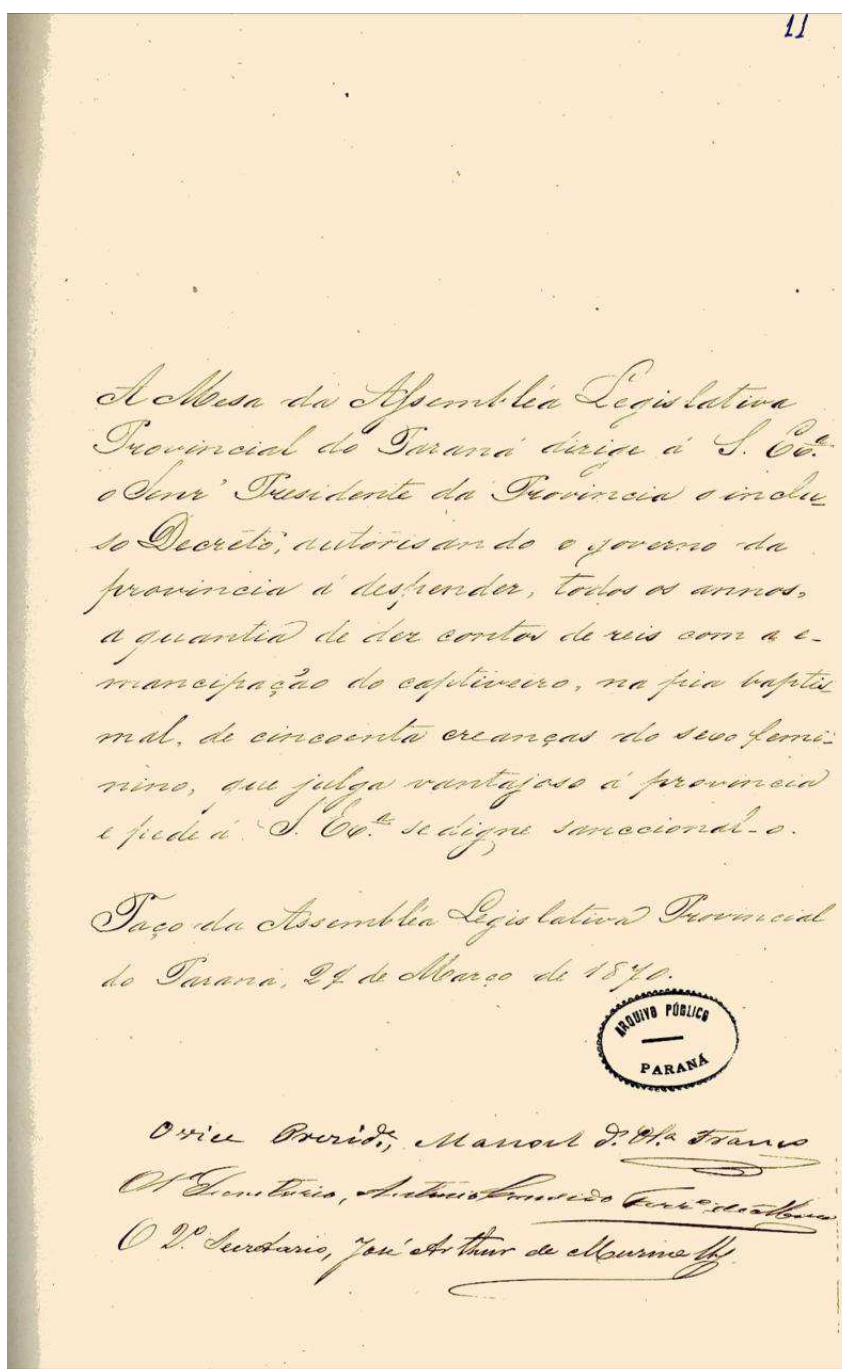 11
A Mesa da Assembléa Legislativa
Provincial do Paraná dirige á S. Exª
o Senr' Presidente da Provincia o inclu-
so Decréto, autorisando o governo da
provincia á despender, todos os annos,
a quantia de dez contos de reis com a e-
mancipação do captiveiro, na pia baptis-
mal, de cincoenta creanças do sexo femi-
nino, que julga vantajoso á provincia
e pede á S. Exª se digne sanccional-o.
Paço da Assembléa Legislativa Provincial
do Paraná, de Março de 1870.
ARQUIVO PÚBLICO
PARANÁ
O vice Prezidᵉ, Manoel d' Olª Franco
O 1º Secretario, Antonio
O 2º Secretario, José Arthur de